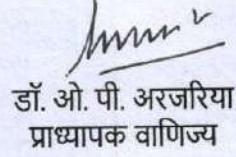 डॉ. ओ. पी. अरजरिया
प्राध्यापक वाणिज्य